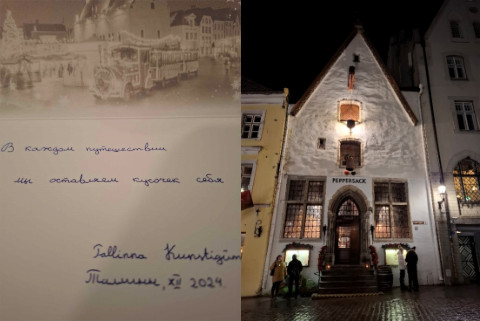 В каждом путешествии
мы оставляем кусочек себя
Tallinna
Таллинн, XII 2024.
PEPPERSACK